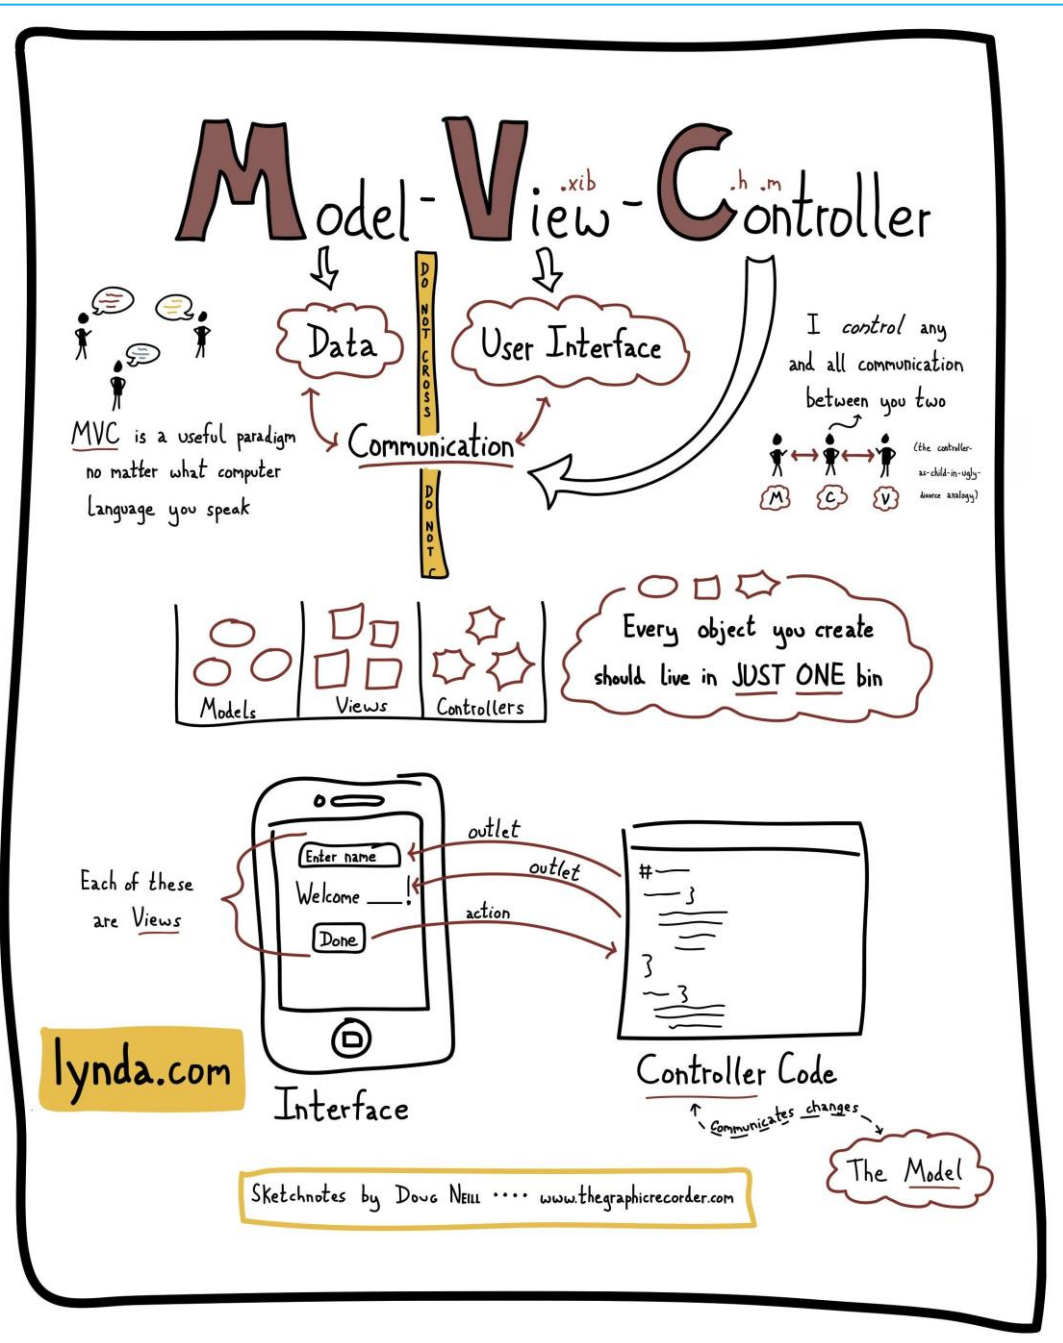 Model-View-Controller
.xib
.h .m
DO NOT CROSS
Data
User Interface
Communication
DO NOT C
MVC is a useful paradigm
no matter what computer
language you speak
I control any
and all communication
between you two
(the controller-
as-child-in-ugly-
divorce analogy)
M C V
Models Views Controllers
Every object you create
should live in JUST ONE bin
Each of these
are Views
Enter name
Welcome ___!
Done
outlet
outlet
action
#
}
}
}
Interface
Controller Code
communicates changes
The Model
lynda.com
Sketchnotes by Doug Neill .... www.thegraphicrecorder.com